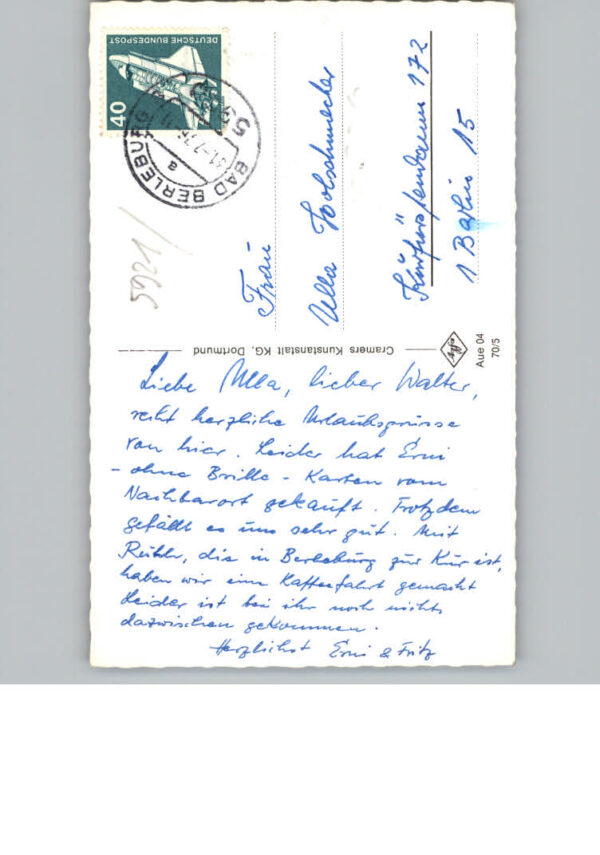 DEUTSCHE BUNDESPOST
40
BAD BERLEBURG
a
5921/
Frau
Ulla Holschmacher
Kürfürstendamm 172
1 Berlin 15
Cramers Kunstanstalt KG, Dortmund
Agfa
Aue 04
70/5
Liebe Ulla, lieber Walter,
recht herzliche Urlaubsgrüsse
von hier. Leider hat Erni
- ohne Brille - Karten vom
Nachbarort gekauft. Trotzdem
gefällt es uns sehr gut. Mit
die in Berleburg zur Kur ist,
haben wir eine Kaffeefahrt gemacht
Leider ist bei ihr noch nichts
dazwischen gekommen.
Herzlichst Erni & Fritz